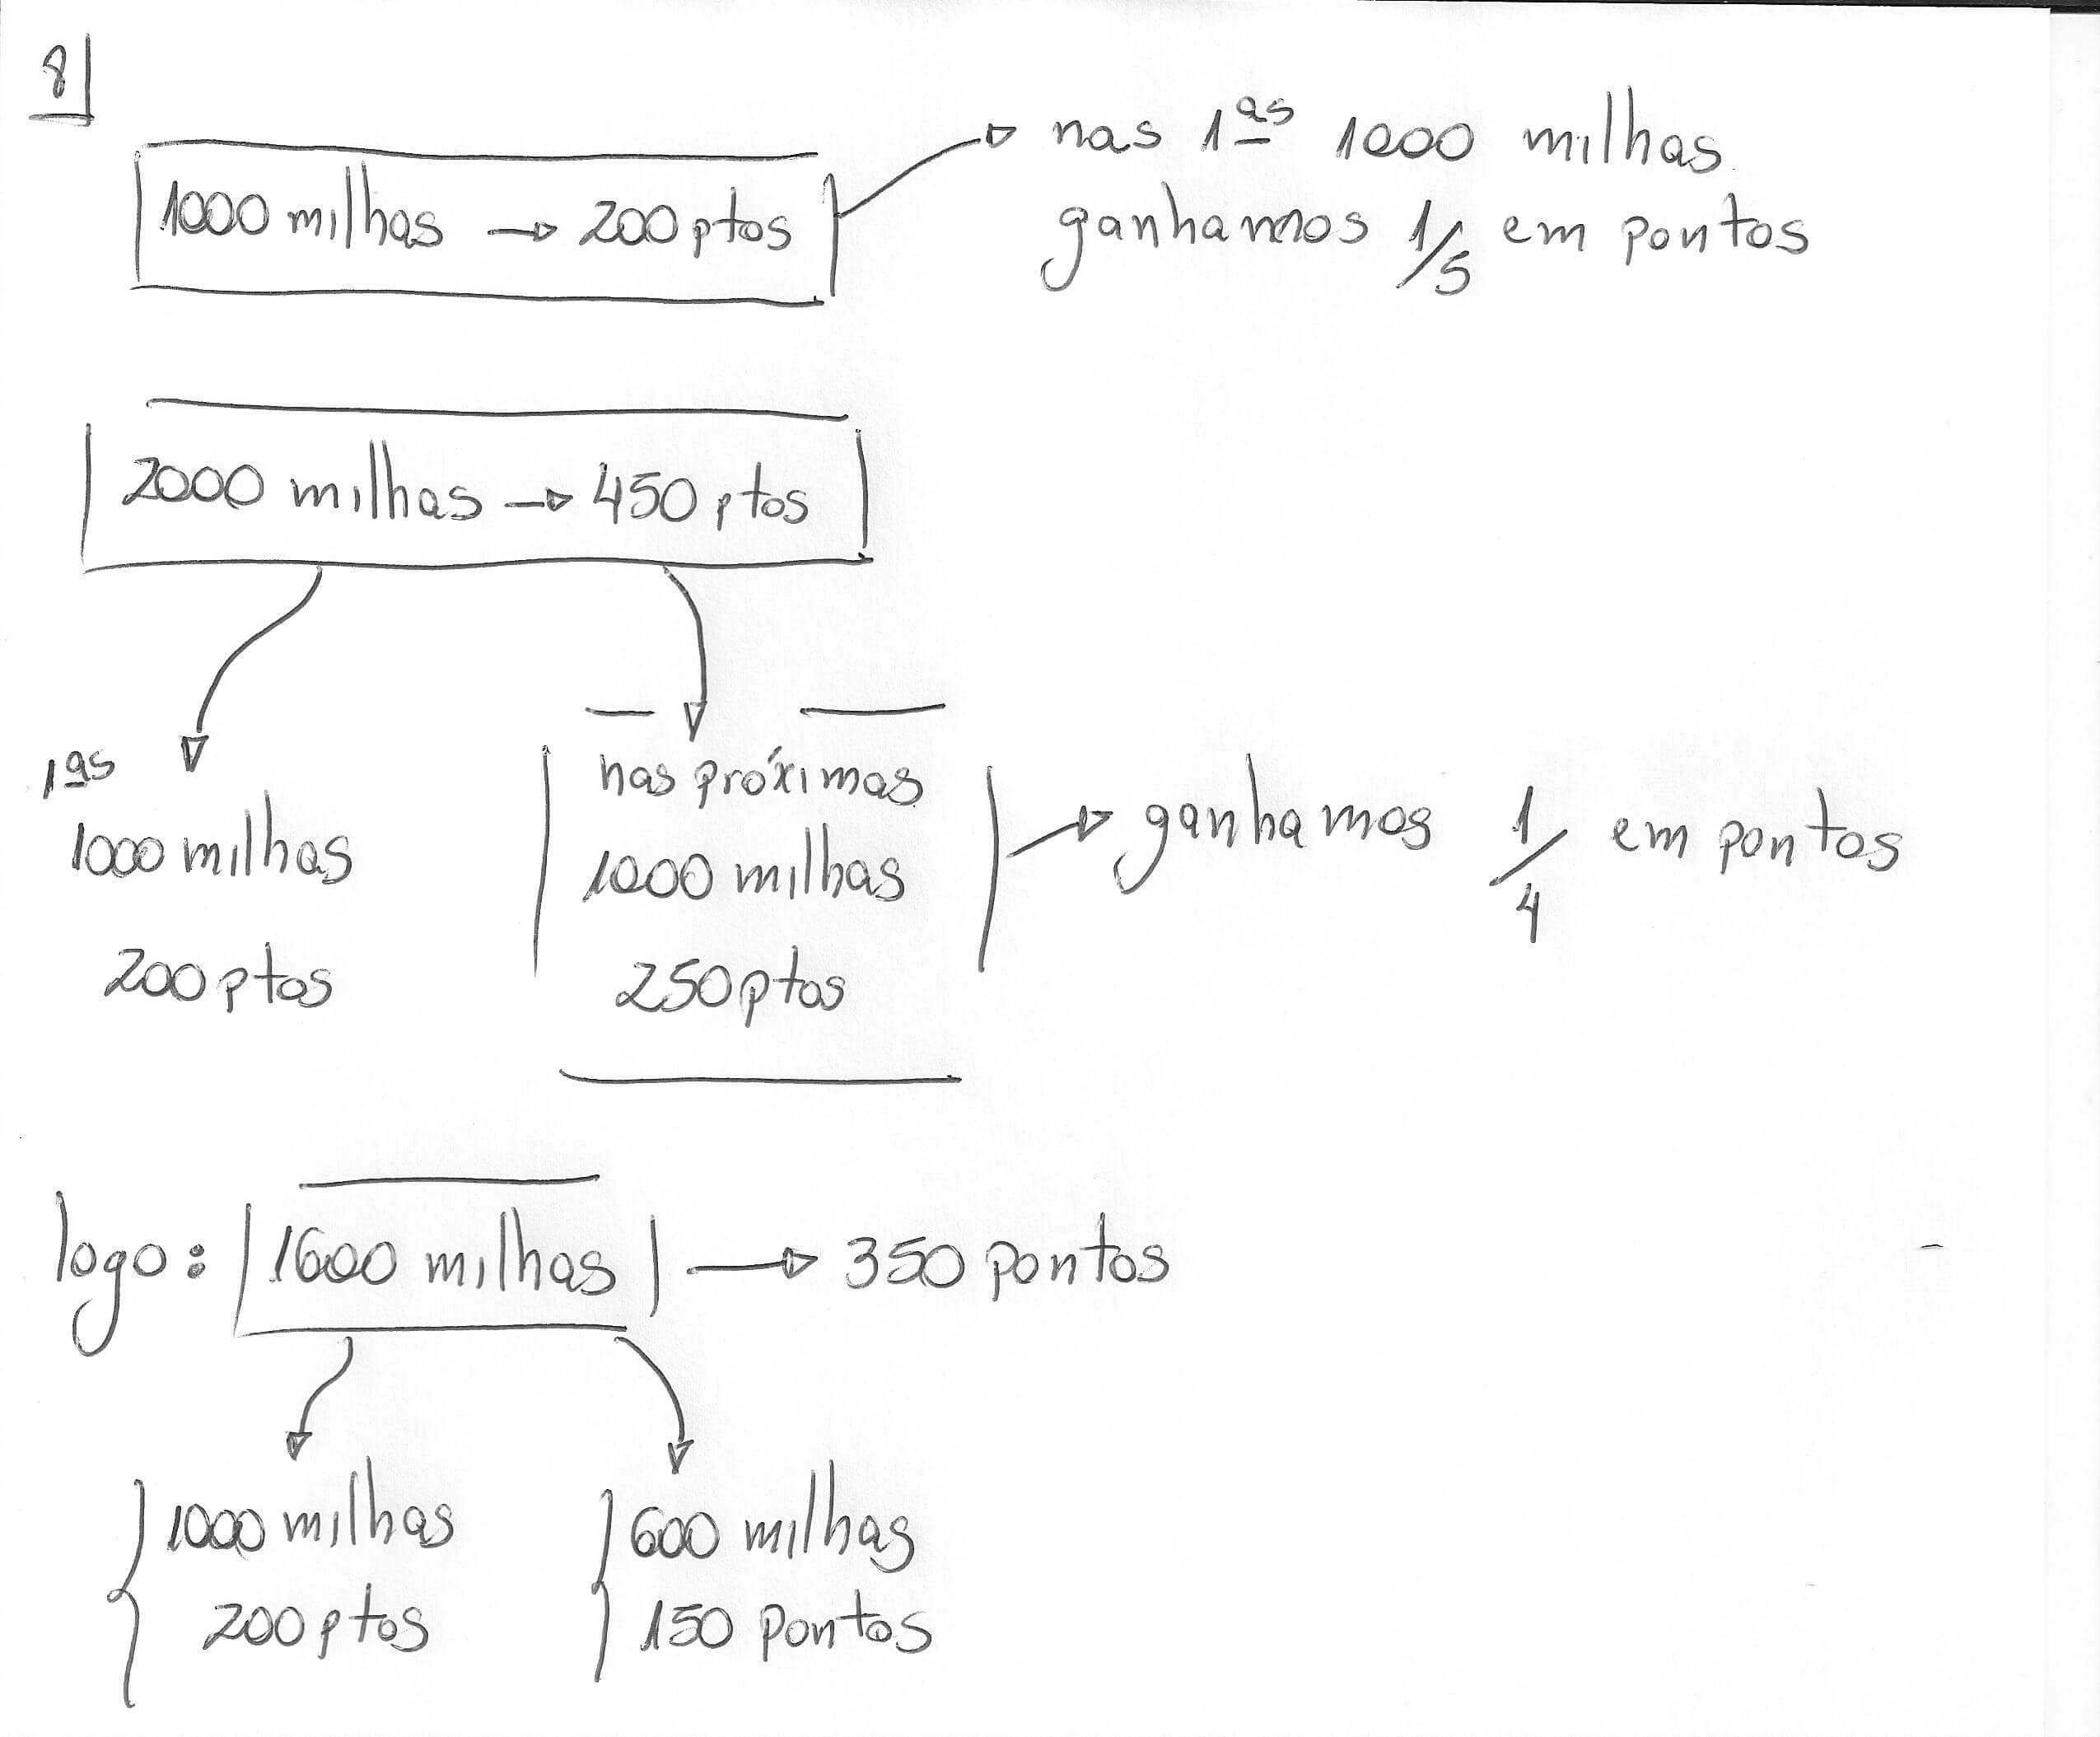 8
1000 milhas → 200 ptos
nas 1as 1000 milhas
ganhamos 1/5 em pontos
2000 milhas → 450 ptos
1as
1000 milhas
200 ptos
nas próximas
1000 milhas
250 ptos
ganhamos 1/4 em pontos
logo: 1600 milhas → 350 pontos
1000 milhas
200 ptos
600 milhas
150 pontos